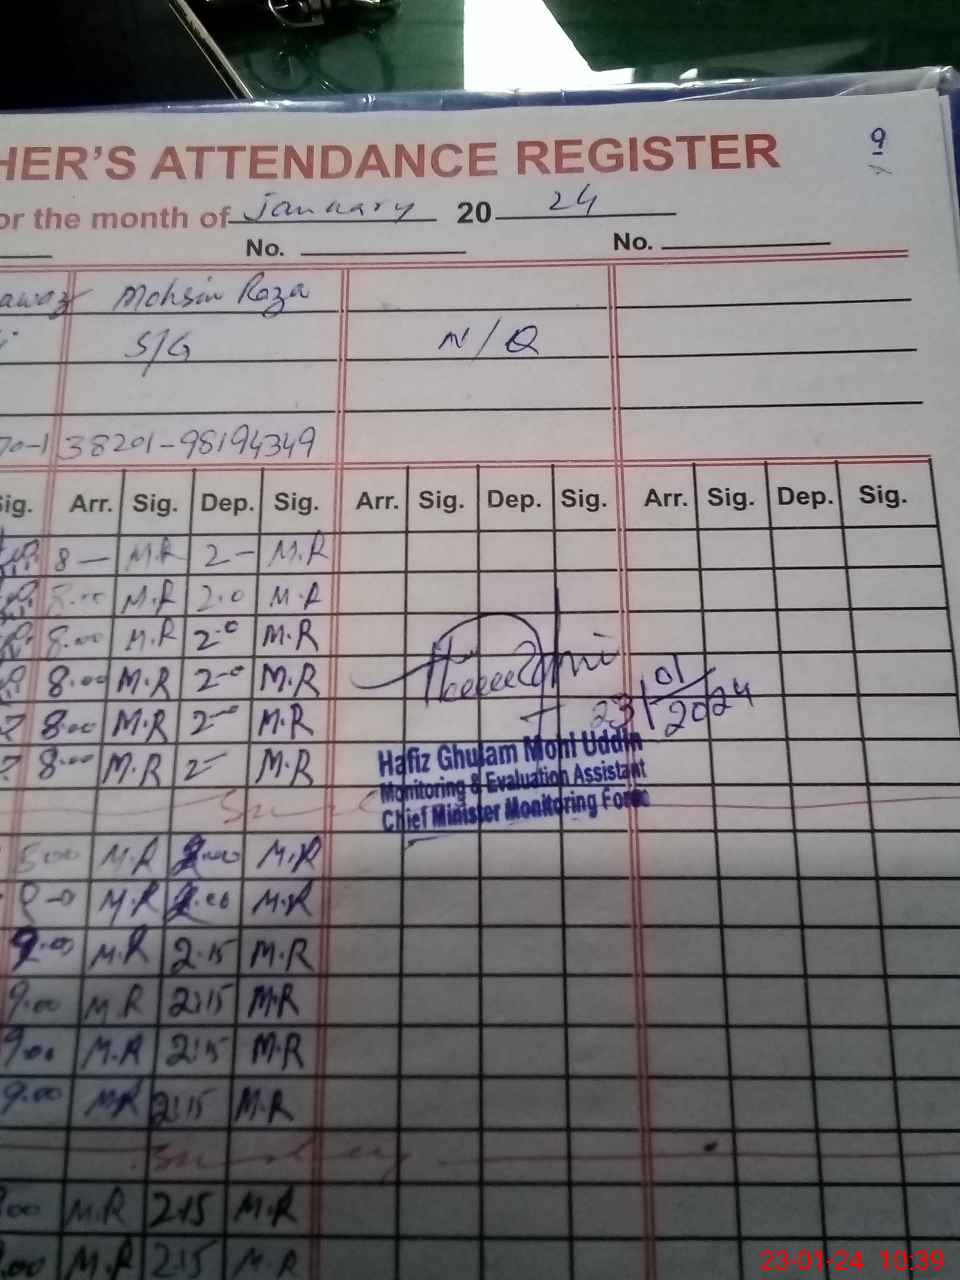 HER'S ATTENDANCE REGISTER 9
or the month of January 20 24
No. No.
awaz Mohsin Raza
S/G N/Q
70-1 38201-98194349
Sig. Arr. Sig. Dep. Sig. Arr. Sig. Dep. Sig. Arr. Sig. Dep. Sig.
8 — M.R 2 — M.R
8.00 M.R 2.0 M.R
8.00 M.R 2-0 M.R
8.00 M.R 2-0 M.R
8.00 M.R 2-0 M.R
8.00 M.R 2- M.R
23/01/2024
Hafiz Ghulam Mohi Uddin
Monitoring & Evaluation Assistant
Chief Minister Monitoring Force
M.R M.R
M.R M.R
9.00 M.R 2.15 M.R
9.00 M.R 2:15 M.R
9.00 M.R 2:15 M.R
9.00 M.R 2:15 M.R
Sunday
00 M.R 2.15 M.R
.00 M.R 2.15 M.R
23-01-24 10:39